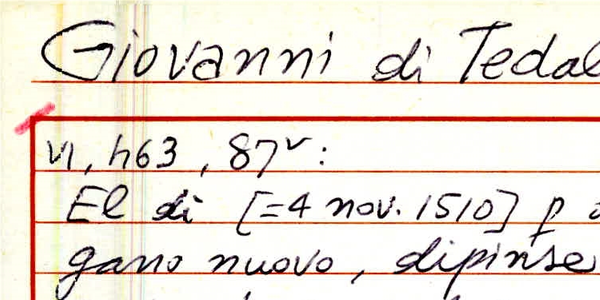 Giovanni di Tedal
VI, h63, 87v:
El di [=4 nov. 1510] p
gano nuovo, dipinse